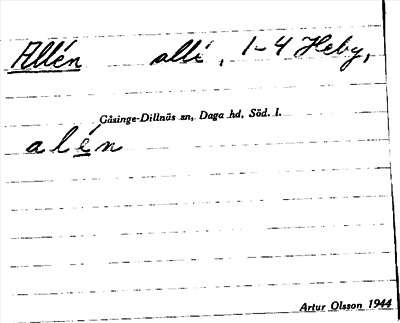 Allén allé, 1-4 Heby,
Gåsinge-Dillnäs sn, Daga hd, Söd. l.
alén
Artur Olsson 1944